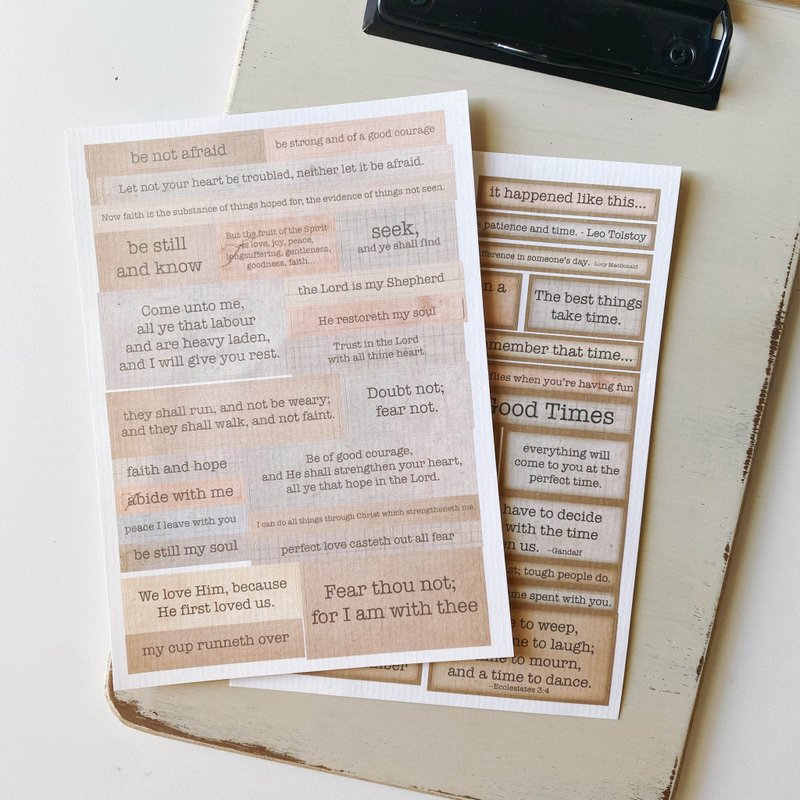 be not afraid
be strong and of a good courage
Let not your heart be troubled, neither let it be afraid.
Now faith is the substance of things hoped for, the evidence of things not seen.
be still
and know
But the fruit of the Spirit
is love, joy, peace,
longsuffering, gentleness,
goodness, faith...
seek,
and ye shall find
Come unto me,
all ye that labour
and are heavy laden,
and I will give you rest.
the Lord is my Shepherd
He restoreth my soul
Trust in the Lord
with all thine heart,
they shall run, and not be weary;
and they shall walk, and not faint.
Doubt not;
fear not.
faith and hope
abide with me
peace I leave with you
be still my soul
Be of good courage,
and He shall strengthen your heart,
all ye that hope in the Lord.
I can do all things through Christ which strengtheneth me.
perfect love casteth out all fear
We love Him, because
He first loved us.
my cup runneth over
Fear thou not;
for I am with thee
it happened like this...
patience and time. - Leo Tolstoy
in someone's day. Lucy MacDonald
a
The best things
take time.
that time...
when you're having fun
Good Times
everything will
come to you at the
perfect time.
have to decide
with the time
us. --Gandalf
tough people do.
spent with you.
to weep,
to laugh;
to mourn,
and a time to dance.
--Ecclesiates 3:4